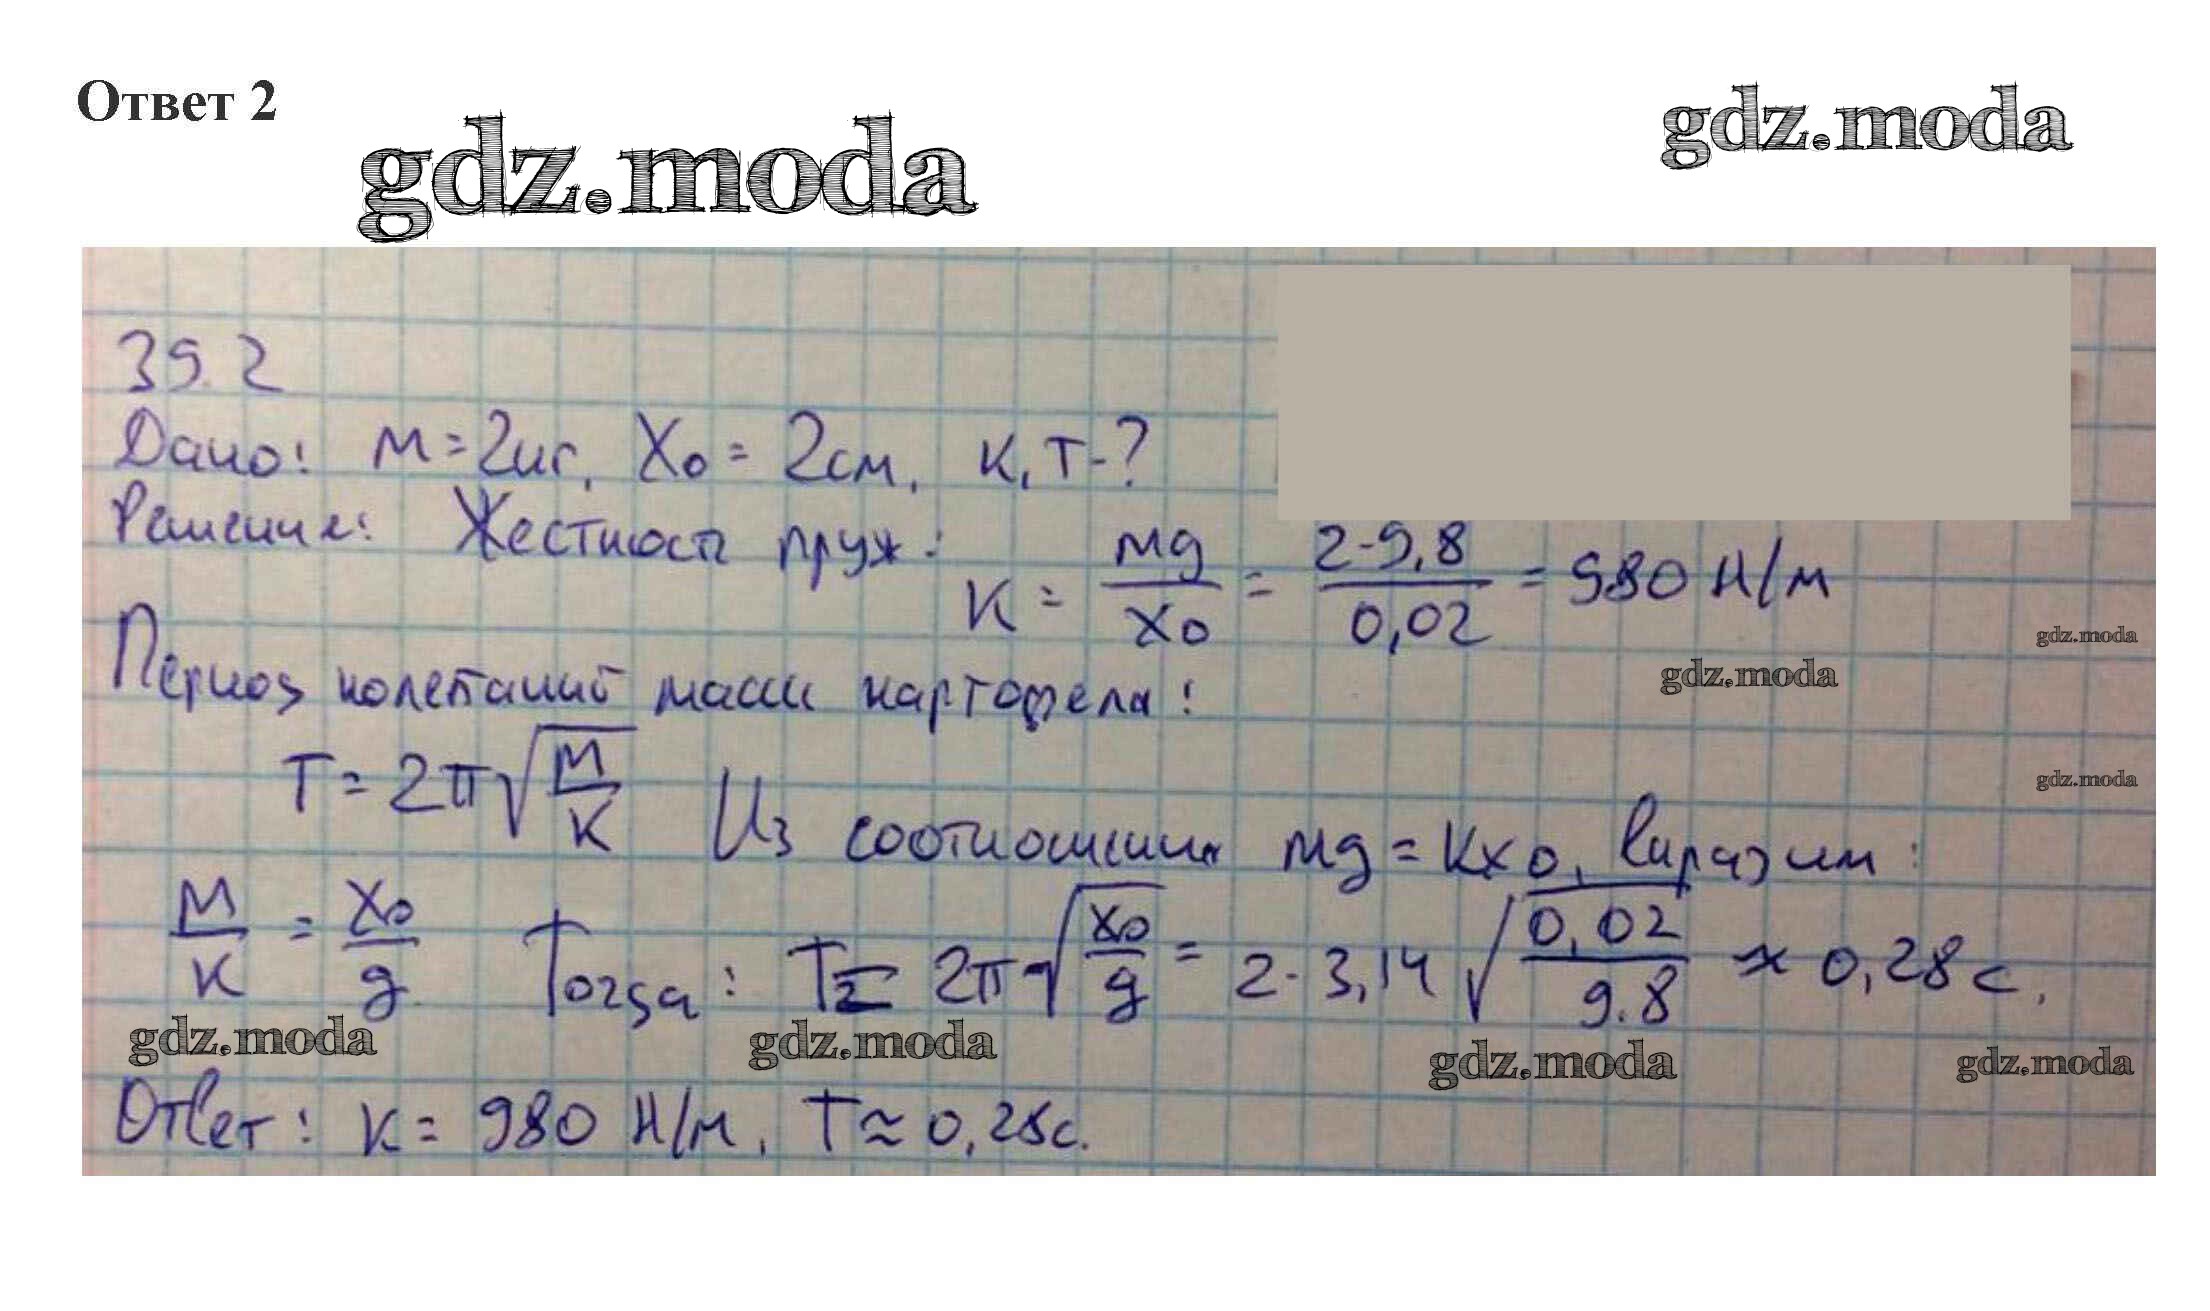 Ответ 2
gdz.moda
gdz.moda
39.2
Дано: m = 2кг, X₀ = 2см, к, т-?
Решение: Жесткость пруж: K = mg/x₀ = 2·9,8/0,02 = 980 Н/м
gdz.moda
gdz.moda
Период колебаний массы картофеля:
T = 2π√(м/к) Из соотношения mg = Kx₀, выразим:
gdz.moda
м/к = x₀/g Тогда: T = 2π√(x₀/g) = 2·3,14√(0,02/9.8) ≈ 0,28 с.
gdz.moda
gdz.moda
gdz.moda
gdz.moda
Ответ: к = 980 Н/м, T ≈ 0,28с.